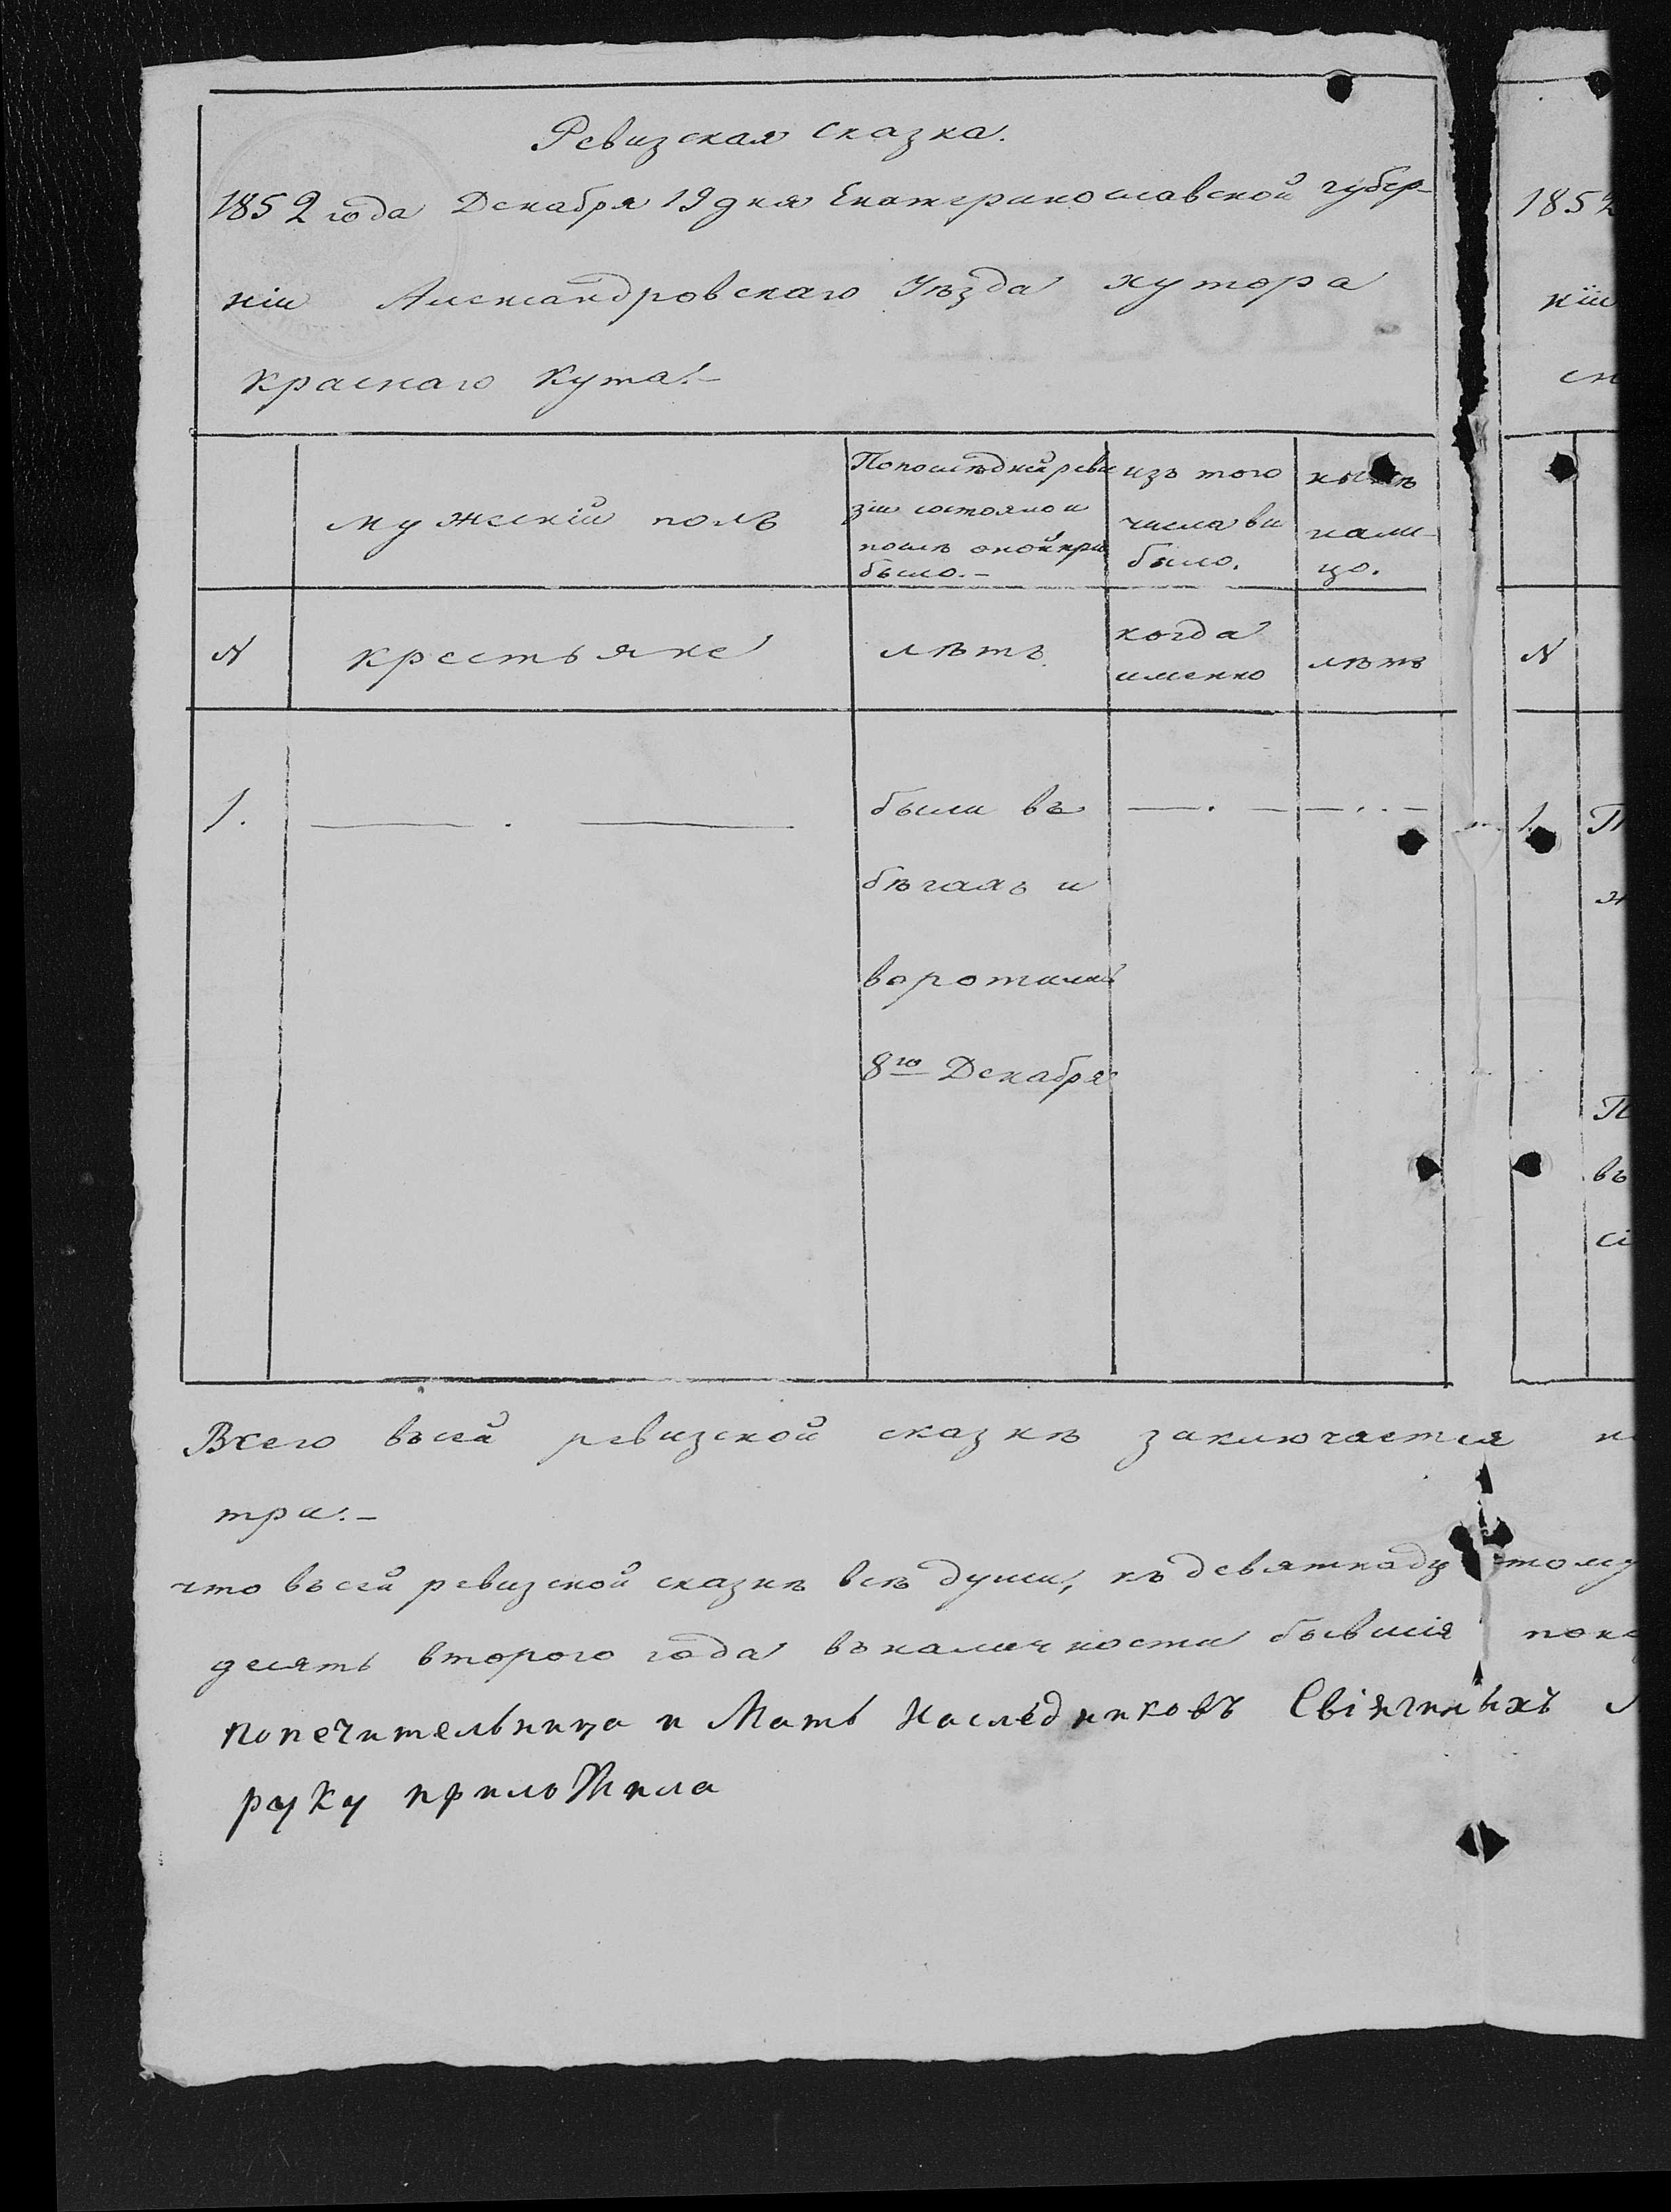 Ревизская сказка.
1852 года Декабря 19 дня Екатеринославской губер-
ніи Александровскаго Уѣзда хутора
Краснаго Кута.-
мужескій полъ
По послѣдней реви
зіи состояло и
послѣ оной при
было.-
изъ того
числа вы
было.
нынѣ
нали-
цо.
N
крестьяне
лѣтъ
когда
именно
лѣтъ
1.
были въ
бѣгахъ и
воротились
8го Декабря
1852
ніи
N
1.
въ
Всего въ сей ревизской сказкѣ заключается
три.-
что въ сей ревизской сказкѣ всѣ души, къ девятнадц тому
десять второго года въ наличности бывшія
попечительница и Мать Наследниковъ Свіягиныхъ
руку приложила